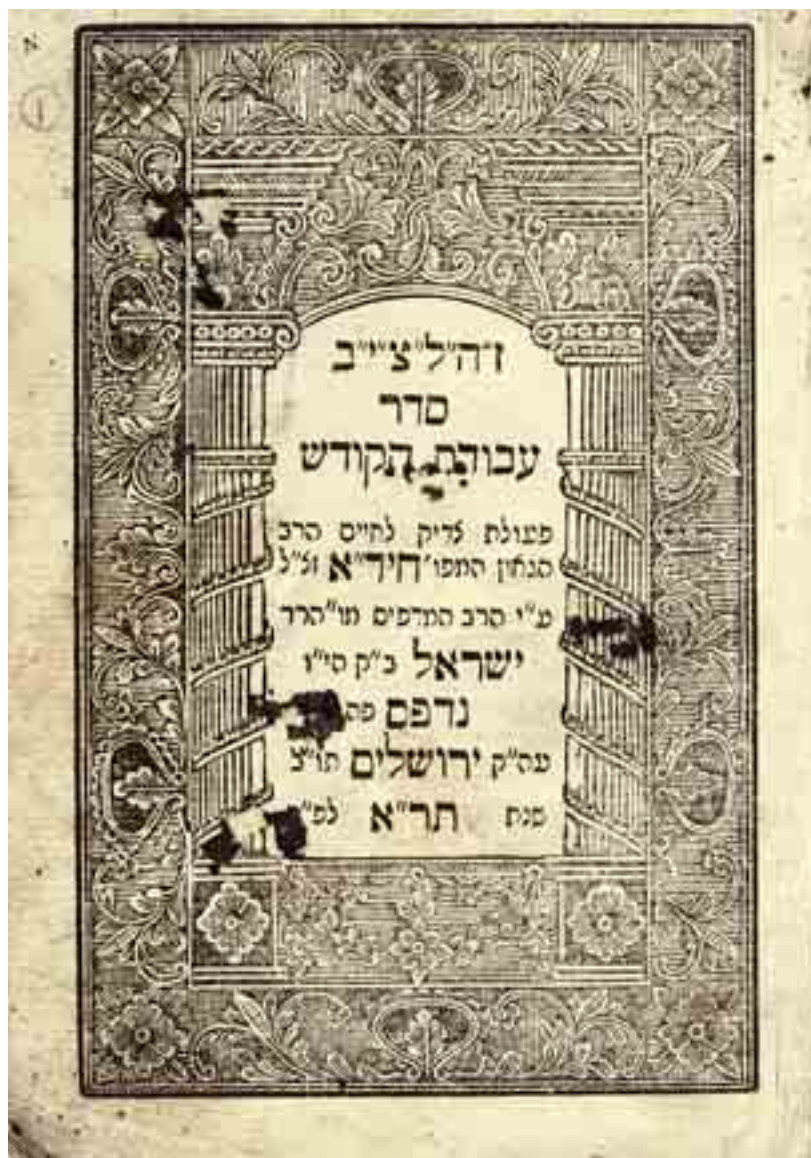 ז"ה"ל"צ"י"ב
סדר
עבודת הקודש
פעולת צדיק לחיים הרב
הגאון המפו' חיד"א זצ"ל
ע"י הרב המדפיס מו"הרר
ישראל ב"ק הי"ו
נדפס פה
עה"ק ירושלים תו"צ
שנת תר"א